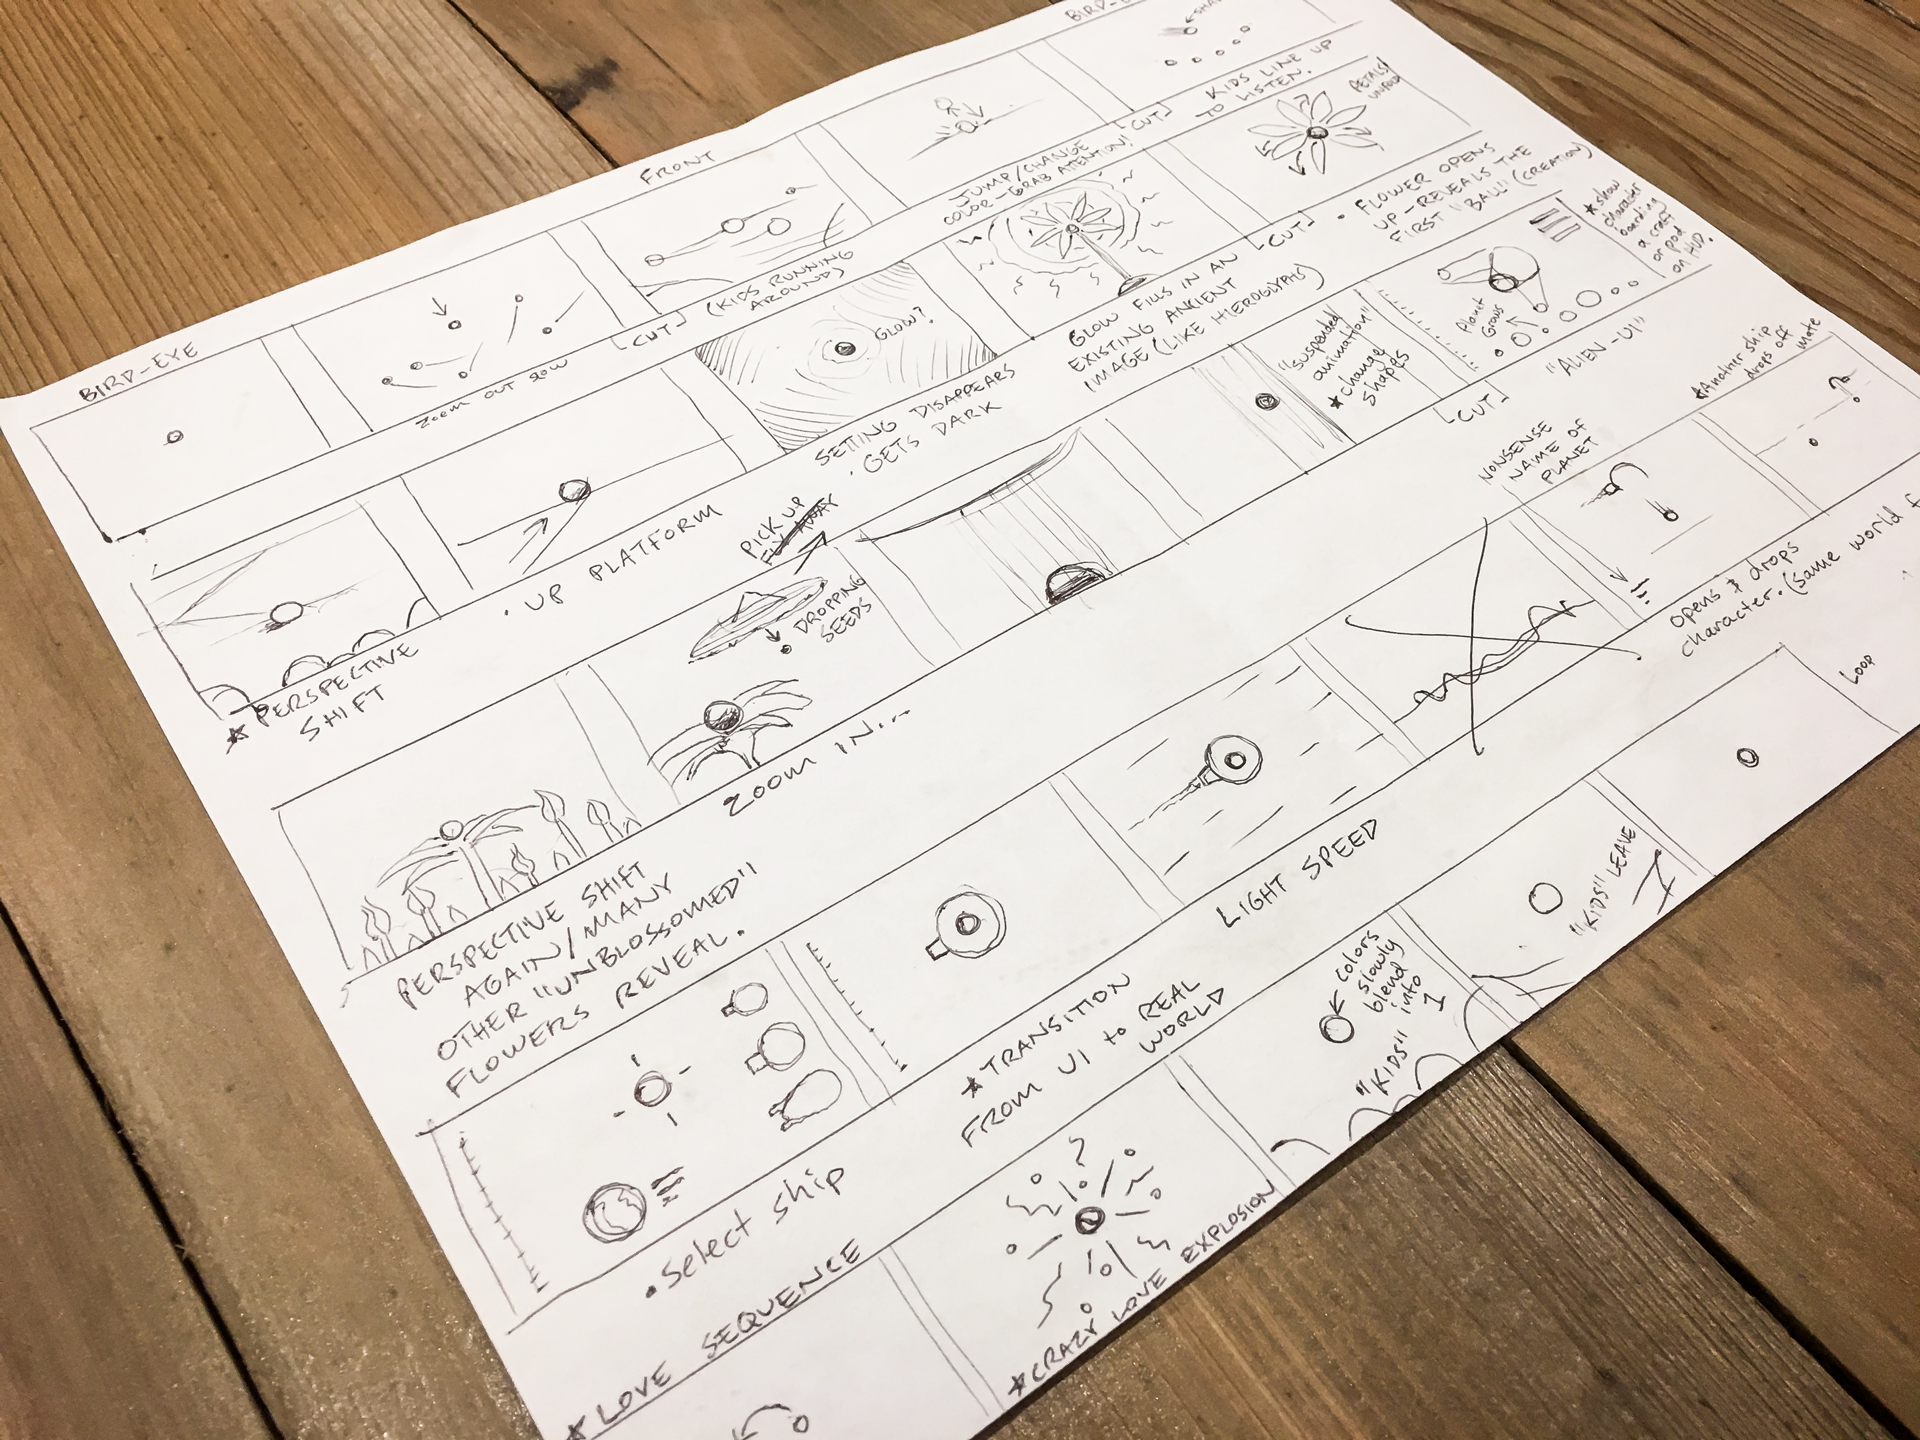 BIRD-EYE
ZOOM OUT SLOW
FRONT
[CUT]
(KIDS RUNNING
AROUND)
JUMP/CHANGE
COLOR-GRAB ATTENTION!
[CUT]
KIDS LINE UP
TO LISTEN.
★PERSPECTIVE
SHIFT
• UP PLATFORM
GLOW?
SETTING DISAPPEARS
• GETS DARK
GLOW FILLS IN AN
EXISTING ANCIENT
IMAGE (LIKE HIEROGLYPHS)
[CUT]
PETALS
UNFOLD
• FLOWER OPENS
UP-REVEALS THE
FIRST "BALL" (CREATION)
PERSPECTIVE SHIFT
AGAIN/MANY
OTHER "UNBLOSSOMED"
FLOWERS REVEAL.
PICK UP
FLY AWAY
DROPPING
SEEDS
ZOOM IN...
"suspended
animation"
★change
shapes
[CUT]
Planet
Grows
★show
character
boarding
a craft
or pod
on HUD.
"ALIEN-UI"
• Select ship
★TRANSITION
FROM UI to REAL
WORLD
LIGHT SPEED
NONSENSE
NAME OF
PLANET
★Another ship
drops off mate
opens & drops
character. (same world
★LOVE SEQUENCE
★CRAZY LOVE EXPLOSION
colors
slowly
blend
into
1
"KIDS"
"KIDS" LEAVE
LOOP